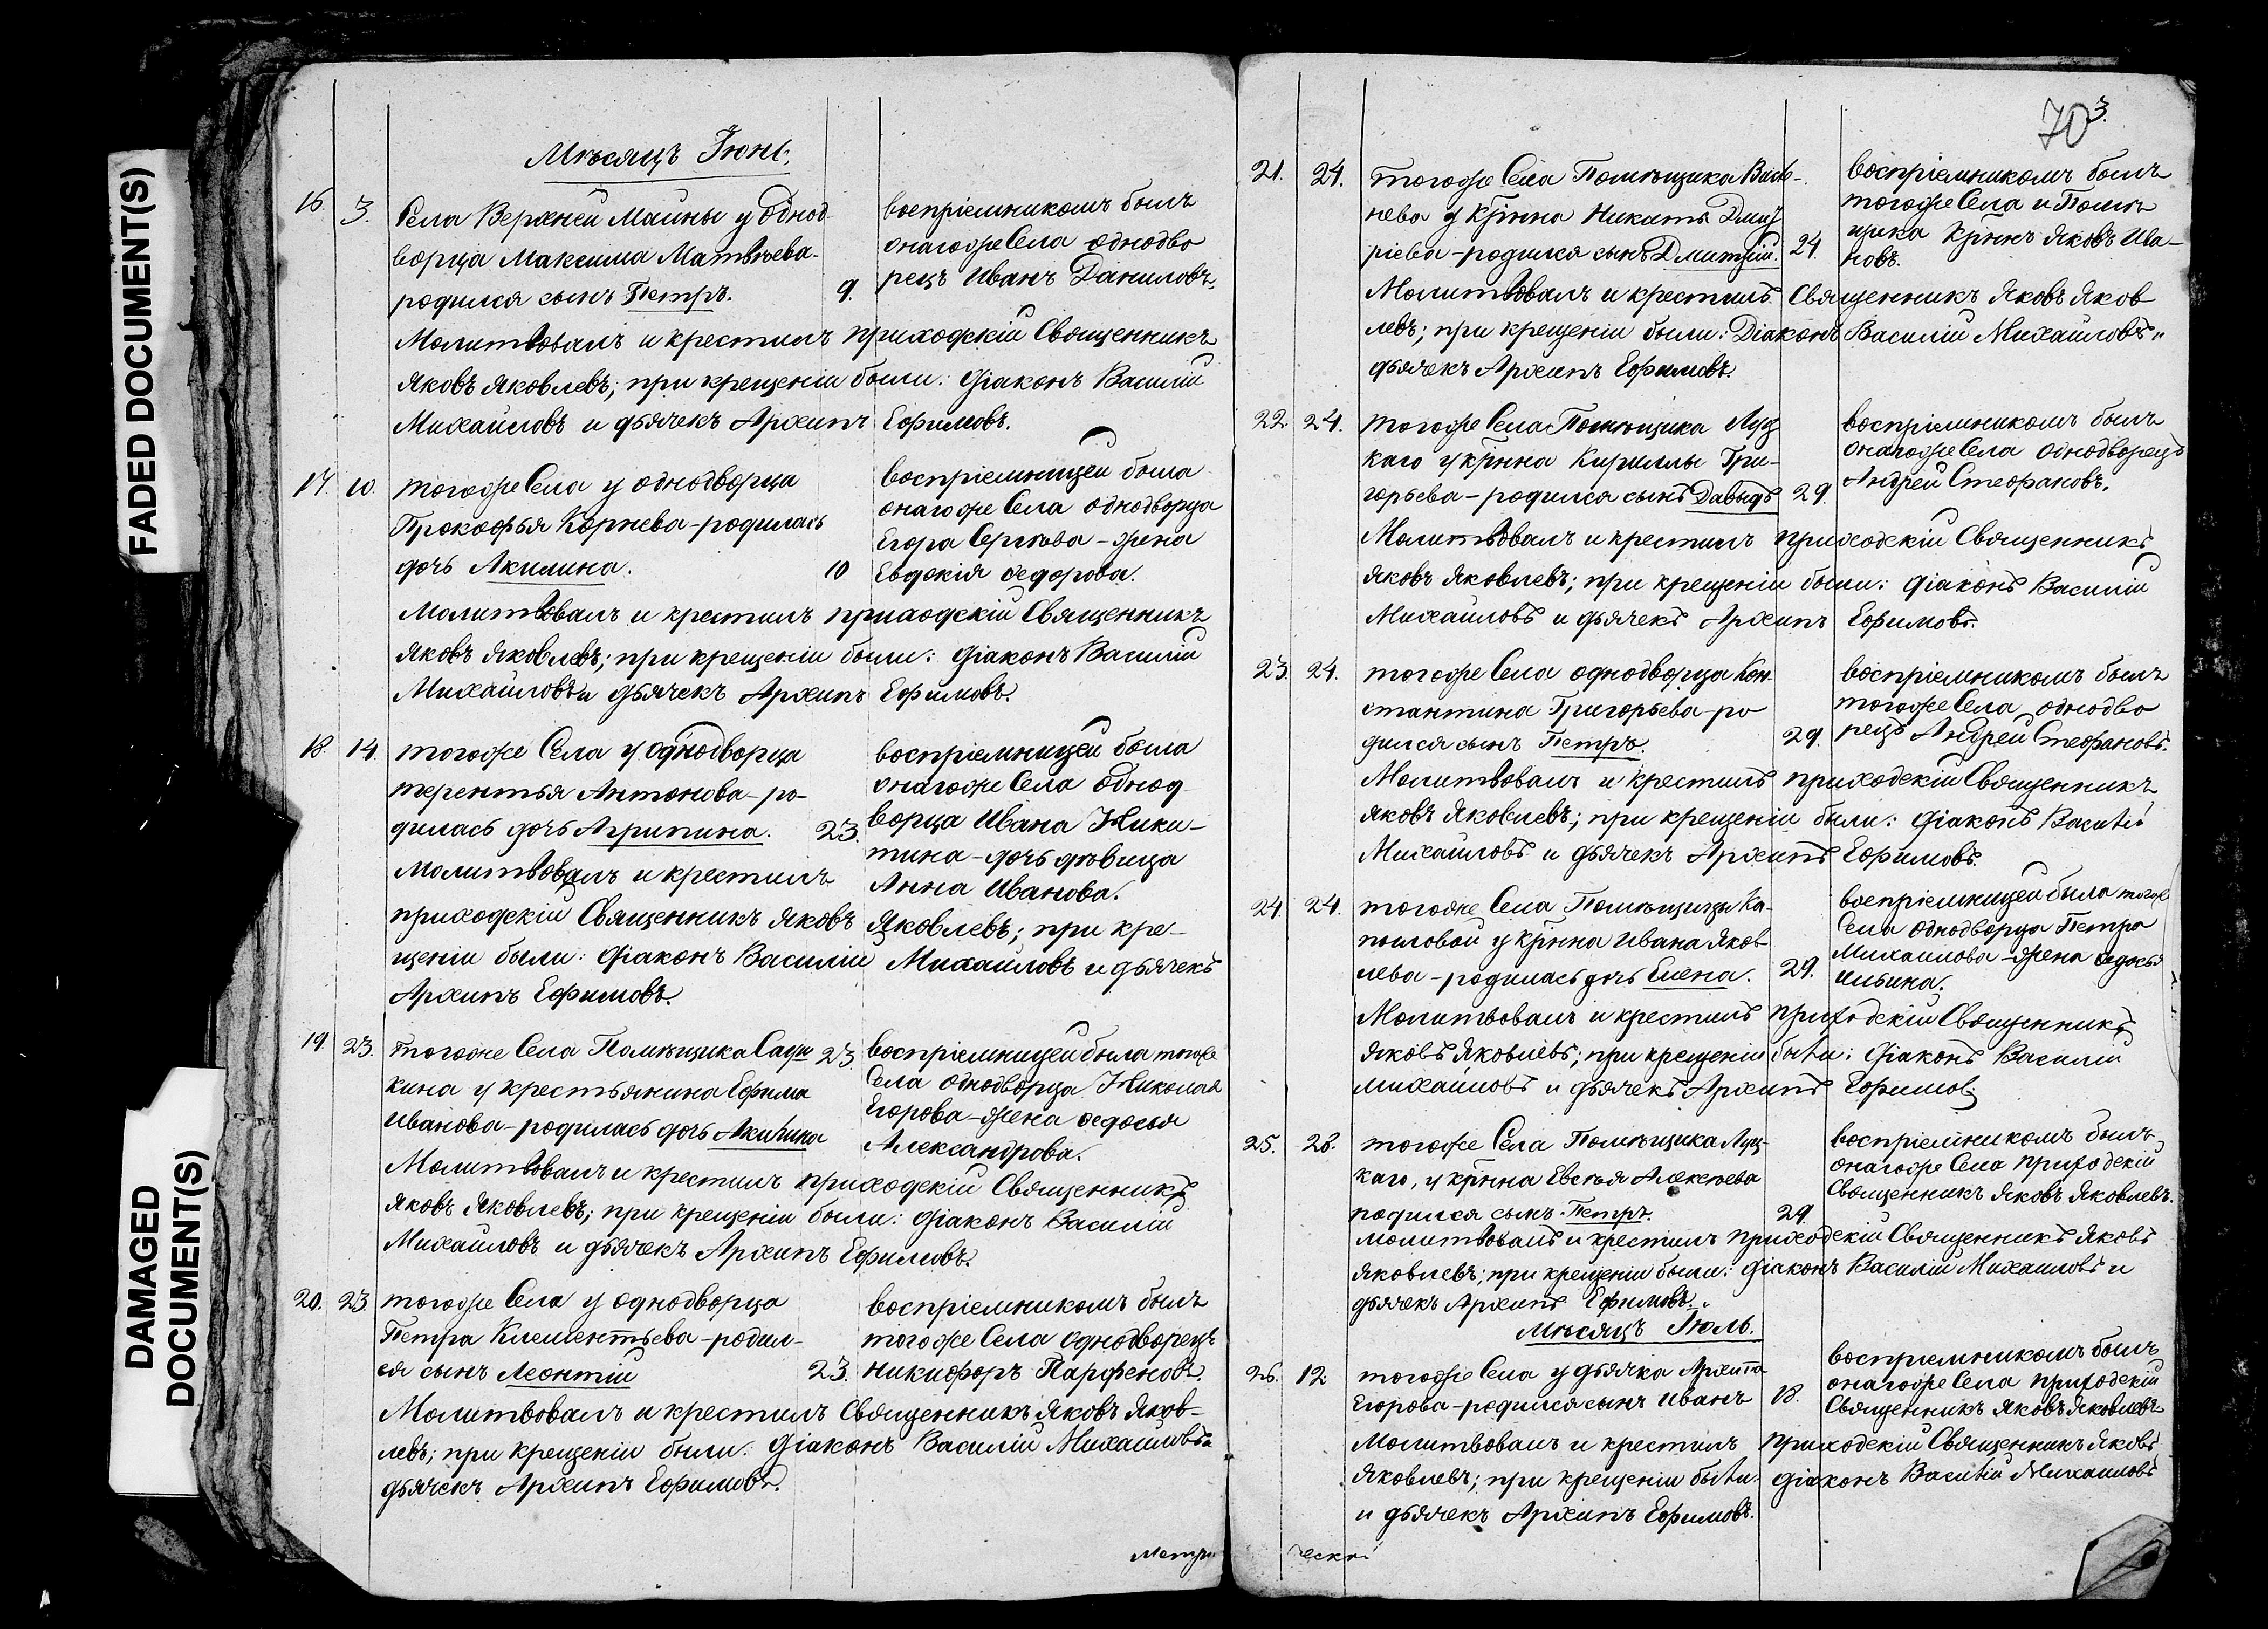 FADED DOCUMENT(S)
DAMAGED
DOCUMENT(S)
Мѣсяцъ Іюнь.
16. 3. Села Верхней Маины у однод
ворца Максима Матвѣева-
родился сынъ Петръ. 9.
воспріемникомъ былъ
онагоже Села однодво
рецъ Иванъ Даниловъ.
Молитвовалъ и крестилъ приходскій Священникъ
Яковъ Яковлевъ; при крещеніи были: діаконъ Василій
Михайловъ и дьячекъ Архипъ Ефимовъ.
17. 10. тогоже Села у однодворца
Прокофья Корнева-родилась
дочь Акилина. 10
воспріемницей была
онагоже Села однодворца
Егора Сергѣева-жена
Евдокія Ѳедорова.
Молитвовалъ и крестилъ приходскій Священникъ
Яковъ Яковлевъ; при крещеніи были: діаконъ Василій
Михайловъ и дьячекъ Архипъ Ефимовъ.
18. 14. тогоже Села у однодворца
терентья Антонова-ро-
дилась дочь Агрипина. 23.
Молитвовалъ и крестилъ
воспріемницей была
онагоже Села однод
ворца Ивана Ники-
тина-дочь дѣвица
Анна Иванова.
приходскій Священникъ Яковъ Яковлевъ; при кре-
щеніи были: діаконъ Василій Михайловъ и дьячекъ
Архипъ Ефимовъ.
19. 23. тогоже Села Помѣщика 23.
кина у крестьянина Ефима
Иванова-родилась дочь Акилина
воспріемницей была тогоже
Села однодворца Николая
Егорова-жена Ѳедосья
Александрова.
Молитвовалъ и крестилъ приходскій Священникъ
Яковъ Яковлевъ; при крещеніи были: діаконъ Василій
Михайловъ и дьячекъ Архипъ Ефимовъ.
20. 23 тогоже Села у однодворца
Петра Клементьева-родил-
ся сынъ Леонтій 23.
воспріемникомъ былъ
тогоже Села однодворецъ
Никифоръ Парфеновъ.
Молитвовалъ и крестилъ Священникъ Яковъ Яков-
левъ; при крещеніи были: діаконъ Василій Михайловъ и
дьячекъ Архипъ Ефимовъ.
Метри
70 3.
21. 24. тогоже Села Помѣщика
нева у Крнна Никиты Дмит
ріева-родился сынъ Дмитрій. 24.
воспріемникомъ былъ
тогоже Села и Помѣ
щика Крннъ Яковъ Ива-
новъ.
Молитвовалъ и крестилъ Священникъ Яковъ Яков
левъ; при крещеніи были: Діаконъ Василій Михайловъ и
дьячекъ Архипъ Ефимовъ.
22. 24. тогоже Села Помѣщика Луц
каго у крнна Кириллы Гри-
горьева-родился сынъ Давыдъ 29.
воспріемникомъ былъ
онагоже Села однодворецъ
Андрей Стефановъ.
Молитвовалъ и крестилъ приходскій Священникъ
Яковъ Яковлевъ; при крещеніи были: діаконъ Василій
Михайловъ и дьячекъ Архипъ Ефимовъ.
23. 24. тогоже Села однодворца Кон-
стантина Григорьева-ро
дился сынъ Петръ. 29.
воспріемникомъ былъ
тогоже Села однодво
рецъ Андрей Стефановъ.
Молитвовалъ и крестилъ приходскій Священникъ
Яковъ Яковлевъ; при крещеніи были: діаконъ Василій
Михайловъ и дьячекъ Архипъ Ефимовъ.
24. 24. тогоже Села Помѣщицы Ка-
у крнна Ивана Яков
лева-родилась дочь Елена. 29.
воспріемницей была тогоже
Села однодворца Петра
Михайлова-жена Ѳедосья
Ильина.
Молитвовалъ и крестилъ приходскій Священникъ
Яковъ Яковлевъ; при крещеніи были: діаконъ Василій
Михайловъ и дьячекъ Архипъ Ефимовъ
25. 28. тогоже Села Помѣщика Луц-
каго, у крнна Евсѣя Алексѣева
родился сынъ Петръ. 29.
воспріемникомъ былъ
онагоже Села приходскій
Священникъ Яковъ Яковлевъ.
Молитвовалъ и крестилъ приходскій Священникъ Яковъ
Яковлевъ; при крещеніи были: діаконъ Василій Михайловъ и
дьячекъ Архипъ Ефимовъ.
Мѣсяцъ Іюль.
26. 12 тогоже Села у дьячка Архипа
Егорова-родился сынъ Иванъ 18.
воспріемникомъ былъ
онагоже Села приходскій
Священникъ Яковъ Яковлевъ
Молитвовалъ и крестилъ приходскій Священникъ Яковъ
Яковлевъ; при крещеніи были: діаконъ Василій Михайловъ
и дьячекъ Архипъ Ефимовъ.
ческой